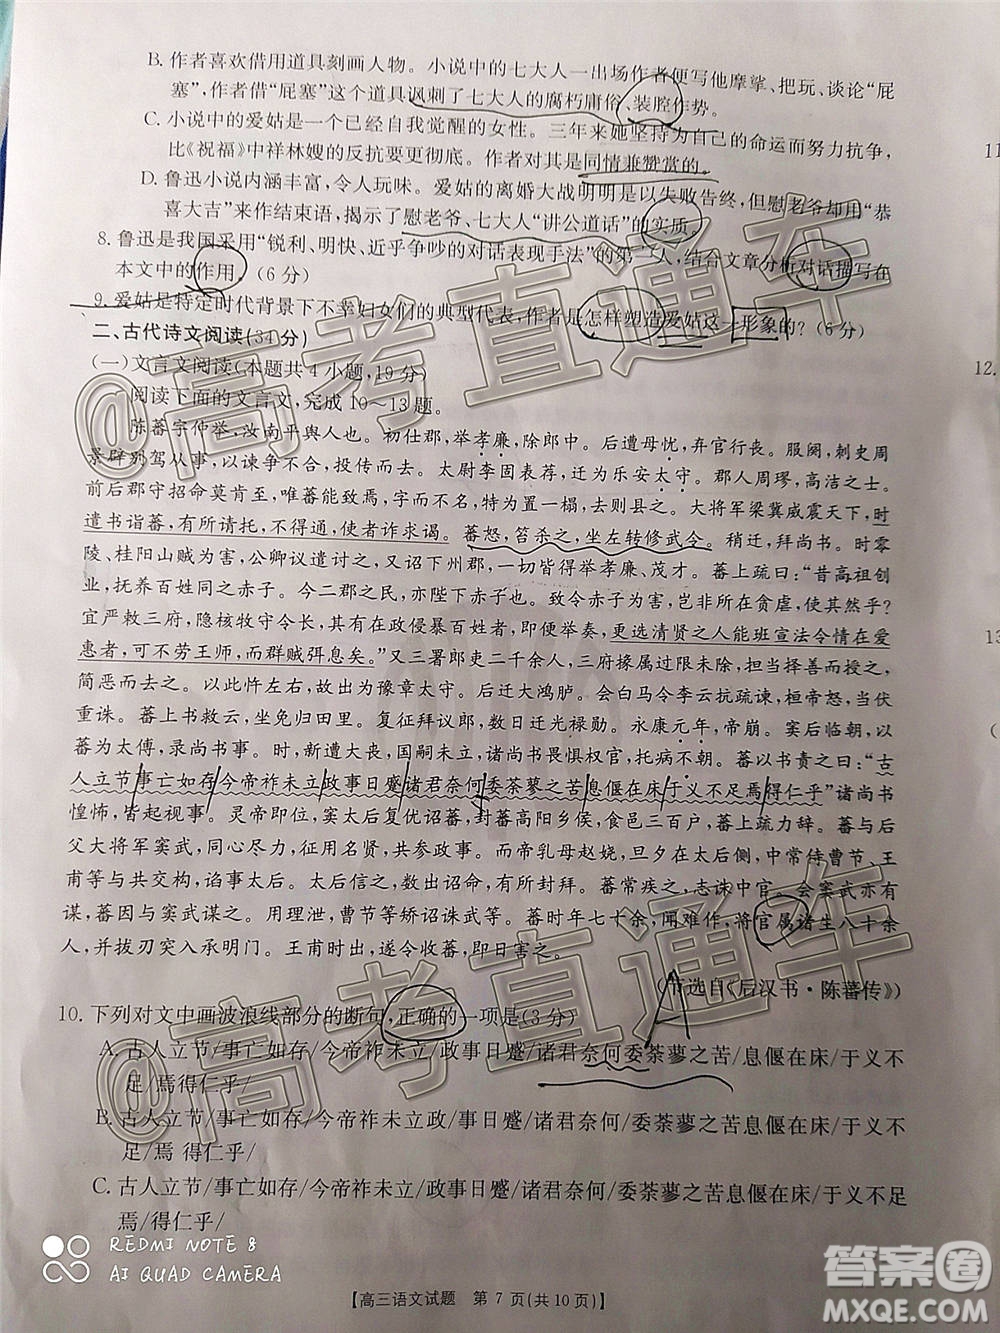 B. 作者喜欢借用道具刻画人物。小说中的七大人一出场作者便写他摩挲、把玩、谈论“屁
塞”,作者借“屁塞”这个道具讽刺了七大人的腐朽庸俗、装腔作势。
C. 小说中的爱姑是一个已经自我觉醒的女性。三年来她坚持为自己的命运而努力抗争,
比《祝福》中祥林嫂的反抗要更强烈。作者对其是同情兼赞赏的。
D. 鲁迅小说内涵丰富,令人玩味。爱姑的离婚大战明明是以失败告终,但慰老爷却用“恭
喜大吉”来作结束语,揭示了慰老爷、七大人“讲公道话”的实质。
8. 鲁迅是我国采用“锐利、明快、近乎争吵的对话表现手法”的第一人,结合文章分析对话描写在
本文中的作用。(6 分)
9. 爱姑是特定时代背景下不幸妇女们的典型代表,作者是怎样塑造爱姑这一形象的?(6 分)
二、古代诗文阅读(34 分)
(一)文言文阅读(本题共 4 小题,19 分)
阅读下面的文言文,完成 10~13 题。
陈蕃字仲举,汝南平舆人也。初仕郡,举孝廉,除郎中。后遭母忧,弃官行丧。服阕,刺史周
景辟别驾从事,以谏争不合,投传而去。太尉李固表荐,迁为乐安太守。郡人周璆,高洁之士。
前后郡守招命莫肯至,唯蕃能致焉,字而不名,特为置一榻,去则县之。大将军梁冀威震天下,时
遣书诣蕃,有所请托,不得通,使者诈求谒。蕃怒,笞杀之,坐左转修武令。稍迁,拜尚书。时零
陵、桂阳山贼为害,公卿议遣讨之,又诏下州郡,一切皆得举孝廉、茂才。蕃上疏曰:“昔高祖创
业,抚养百姓同之赤子。今二郡之民,亦陛下赤子也。致令赤子为害,岂非所在贪虐,使其然乎?
宜严敕三府,隐核牧守令长,其有在政侵暴百姓者,即便举奏,更选清贤之人能班宣法令情在爱
惠者,可不劳王师,而群贼弭息矣。”又三署郎吏二千余人,三府掾属过限未除,但当择善而授之,
简恶而去之。以此忤左右,故出为豫章太守。后迁大鸿胪。会白马令李云抗疏谏,桓帝怒,当伏
重诛。蕃上书救云,坐免归田里。复征拜议郎,数日迁光禄勋。永康元年,帝崩。窦后临朝,以
蕃为太傅,录尚书事。时,新遭大丧,国嗣未立,诸尚书畏惧权官,托病不朝。蕃以书责之曰:“古
人立节事亡如存今帝祚未立政事日蹙诸君奈何委荼蓼之苦息偃在床于义不足焉得仁乎”诸尚书
惶怖,皆起视事。灵帝即位,窦太后复优诏蕃,封蕃高阳乡侯,食邑三百户,蕃上疏力辞。蕃与后
父大将军窦武,同心尽力,征用名贤,共参政事。而帝乳母赵娆,旦夕在太后侧,中常侍曹节、王
甫等与共交构,谄事太后。太后信之,数出诏命,有所封拜。蕃常疾之,志诛中官。会窦武亦有
谋,蕃因与窦武谋之。用理泄,曹节等矫诏诛武等。蕃时年七十余,闻难作,将官属诸生八十余
人,并拔刃突入承明门。王甫时出,遂令收蕃,即日害之。
(节选自《后汉书·陈蕃传》)
10. 下列对文中画波浪线部分的断句,正确的一项是(3 分)
A. 古人立节/事亡如存/今帝祚未立/政事日蹙/诸君奈何委荼蓼之苦/息偃在床/于义不
足/焉得仁乎/
B. 古人立节/事亡如存/今帝祚未立政/事日蹙/诸君奈何/委荼蓼之苦息偃在床/于义不
足/焉 得仁乎/
C. 古人立节/事亡如存/今帝祚未立/政事日蹙/诸君奈何/委荼蓼之苦息偃在床/于义不足
焉/得仁乎/
【高三语文试题 第 7 页(共 10 页)】
11
12.
13
(
@高考直通车
@高考直通车
REDMI NOTE 8
AI QUAD CAMERA
答案圈
MXQE.COM